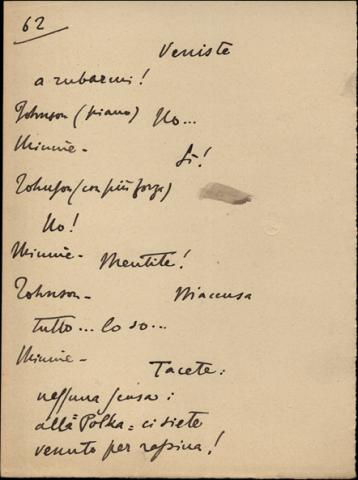 62
Veniste
a rubarmi!
Johnson (piano) No...
Minnie - Sì!
Johnson (con più forza)
No!
Minnie - Mentite!
Johnson - M'accusa
tutto... lo so...
Minnie - Tacete:
nessuna scusa:
alla "Polka" ci siete
venuto per rapina!